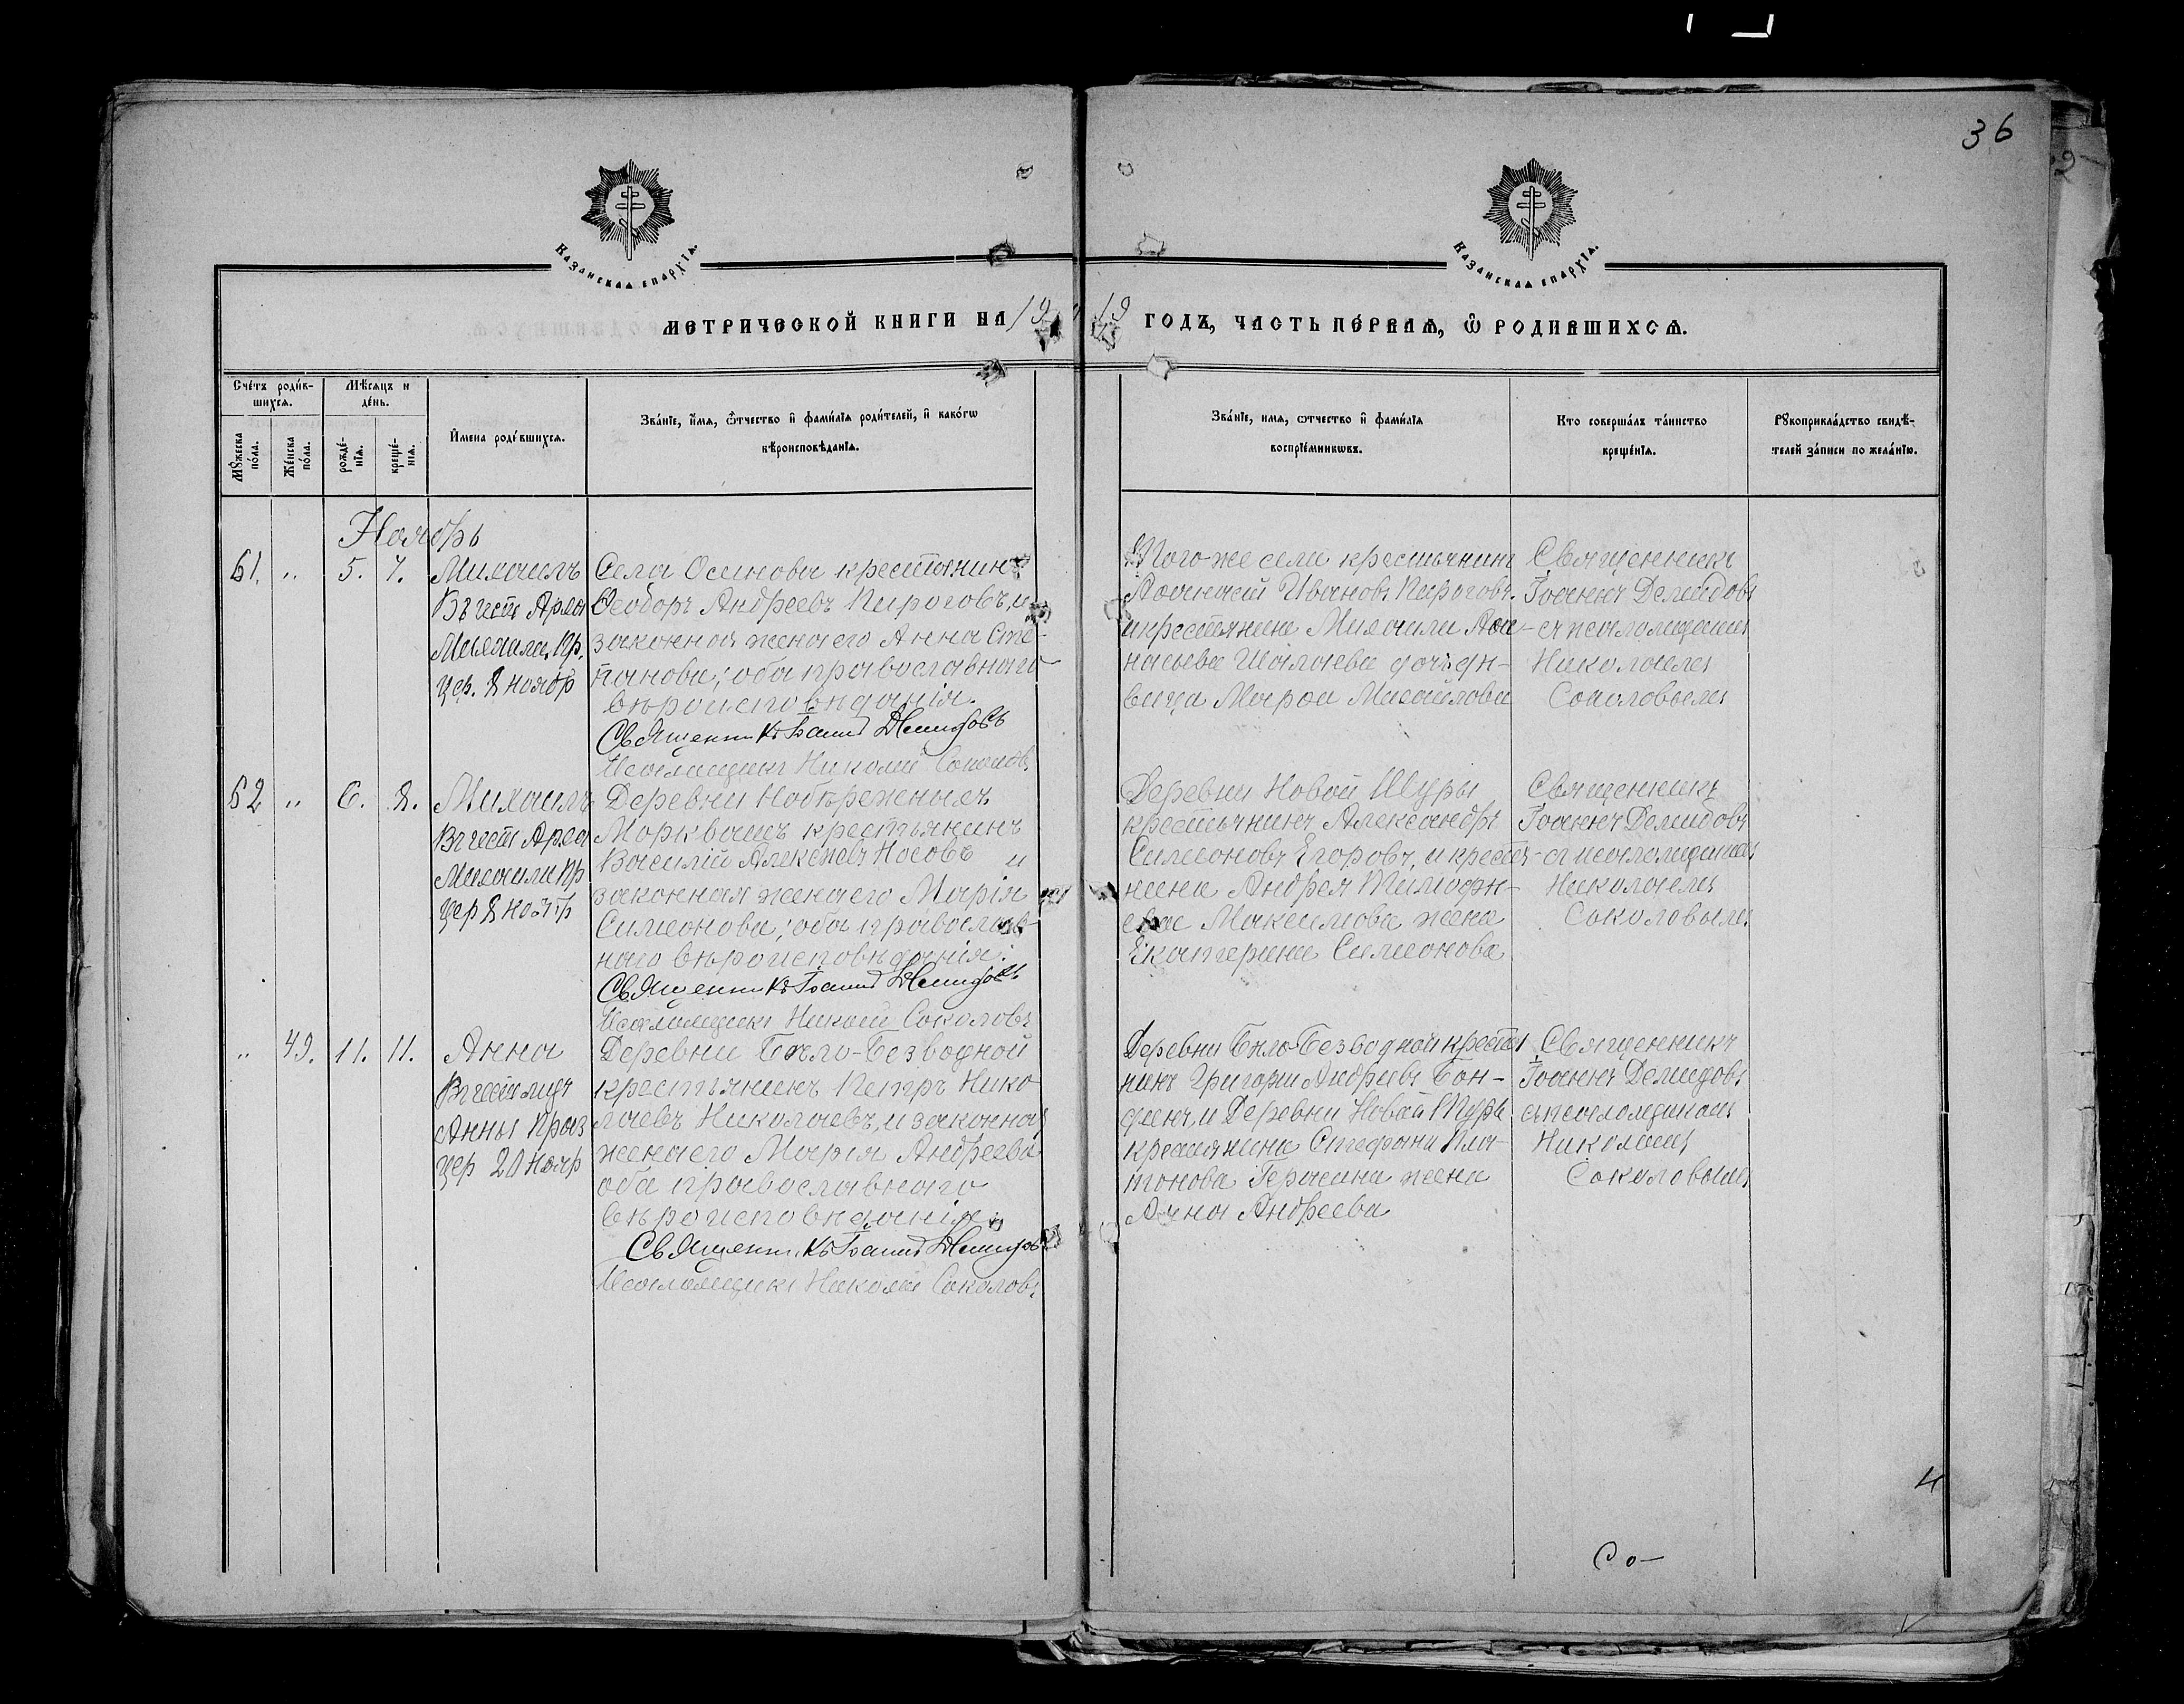 36
Казанская епархїя.
Казанская епархїя.
метрической книги на 19
19 годъ, часть первая, ѡ родившихся.
Сче́тъ роди́вшихся.
Мѣ́сяцъ и де́нь.
Мꙋ́жеска по́ла.
Же́нска по́ла.
рожде́нїя.
креще́нїя.
И҆мена роди́вшихся.
Зва́нїе, и҆́мя, ѻ҆́тчество и҆ фами́лїя роди́телей, и҆ како́гѡ
вѣроисповѣ́данїя.
Зва́нїе, имя, ѻтчество и҆ фами́лїя
воспрїе́мникѡвъ.
Кто соверша́лъ та́инство
креще́нїя.
Рꙋкоприкла́дство свидѣ́-
телей за́писи по жела́нїю.
Ноябрь
61. " 5. 7. Михаилъ
Въ честь Архн
Михаила, Пр.
цер. 8 ноябр
Села Осинова крестянинъ
Ѳеодоръ Андреевъ Пироговъ, и
законная жена его Анна Сте-
панова; оба православнаго
вѣроисповѣданія.
Священникъ Іоаннъ Демидовъ
Псаломщикъ Николай Соколовъ
Того-же села крестьянинъ
Иванов Пироговъ.
и крестянина Михаила Аѳа-
насьева дочь дѣ-
вица Михайлова
Священникъ
Іоаннъ Демидовъ
съ псаломщикомъ
Николаемъ
Соколовымъ
62 " 6. 8. Михаилъ
Въ честь Архн
Михаила Пр
цер 8 ноябр
Деревни Набережныхъ
Морквашъ крестьянинъ
Василій Алексѣевъ Носовъ и
законная жена его Марія
Симеонова; оба православ-
наго вѣроисповѣданія.
Священникъ Іоаннъ Демидовъ
Псаломщикъ Николай Соколовъ
Деревни Новой Туры
крестьянинъ Александръ
Симеоновъ Егоровъ, и крестя-
нина Андрея Тимоѳѣ-
ева Максимова жена
Екатерина Симеонова
Священникъ
Іоаннъ Демидовъ
съ псаломщикомъ
Николаемъ
Соколовымъ
" 49. 11. 11. Анна
Въ честь
Анны Праз
цер 20 Нояб
Деревни Бѣло-Безводной
крестьянинъ Петръ Нико
лаевъ Николаевъ, и законная
жена его Марія Андреева
оба православнаго
вѣроисповѣданія
Священникъ Іоаннъ Демидовъ
Псаломщикъ Николай Соколовъ
Деревни Бѣло-Безводной крестя
нинъ Григорій Андреевъ
и Деревни Новой Туры
крестянина Стефана Пла-
тонова Герасима жена
Анна Андреева
Священникъ
Іоаннъ Демидовъ
съ псаломщикомъ
Николаемъ
Соколовымъ
Со-